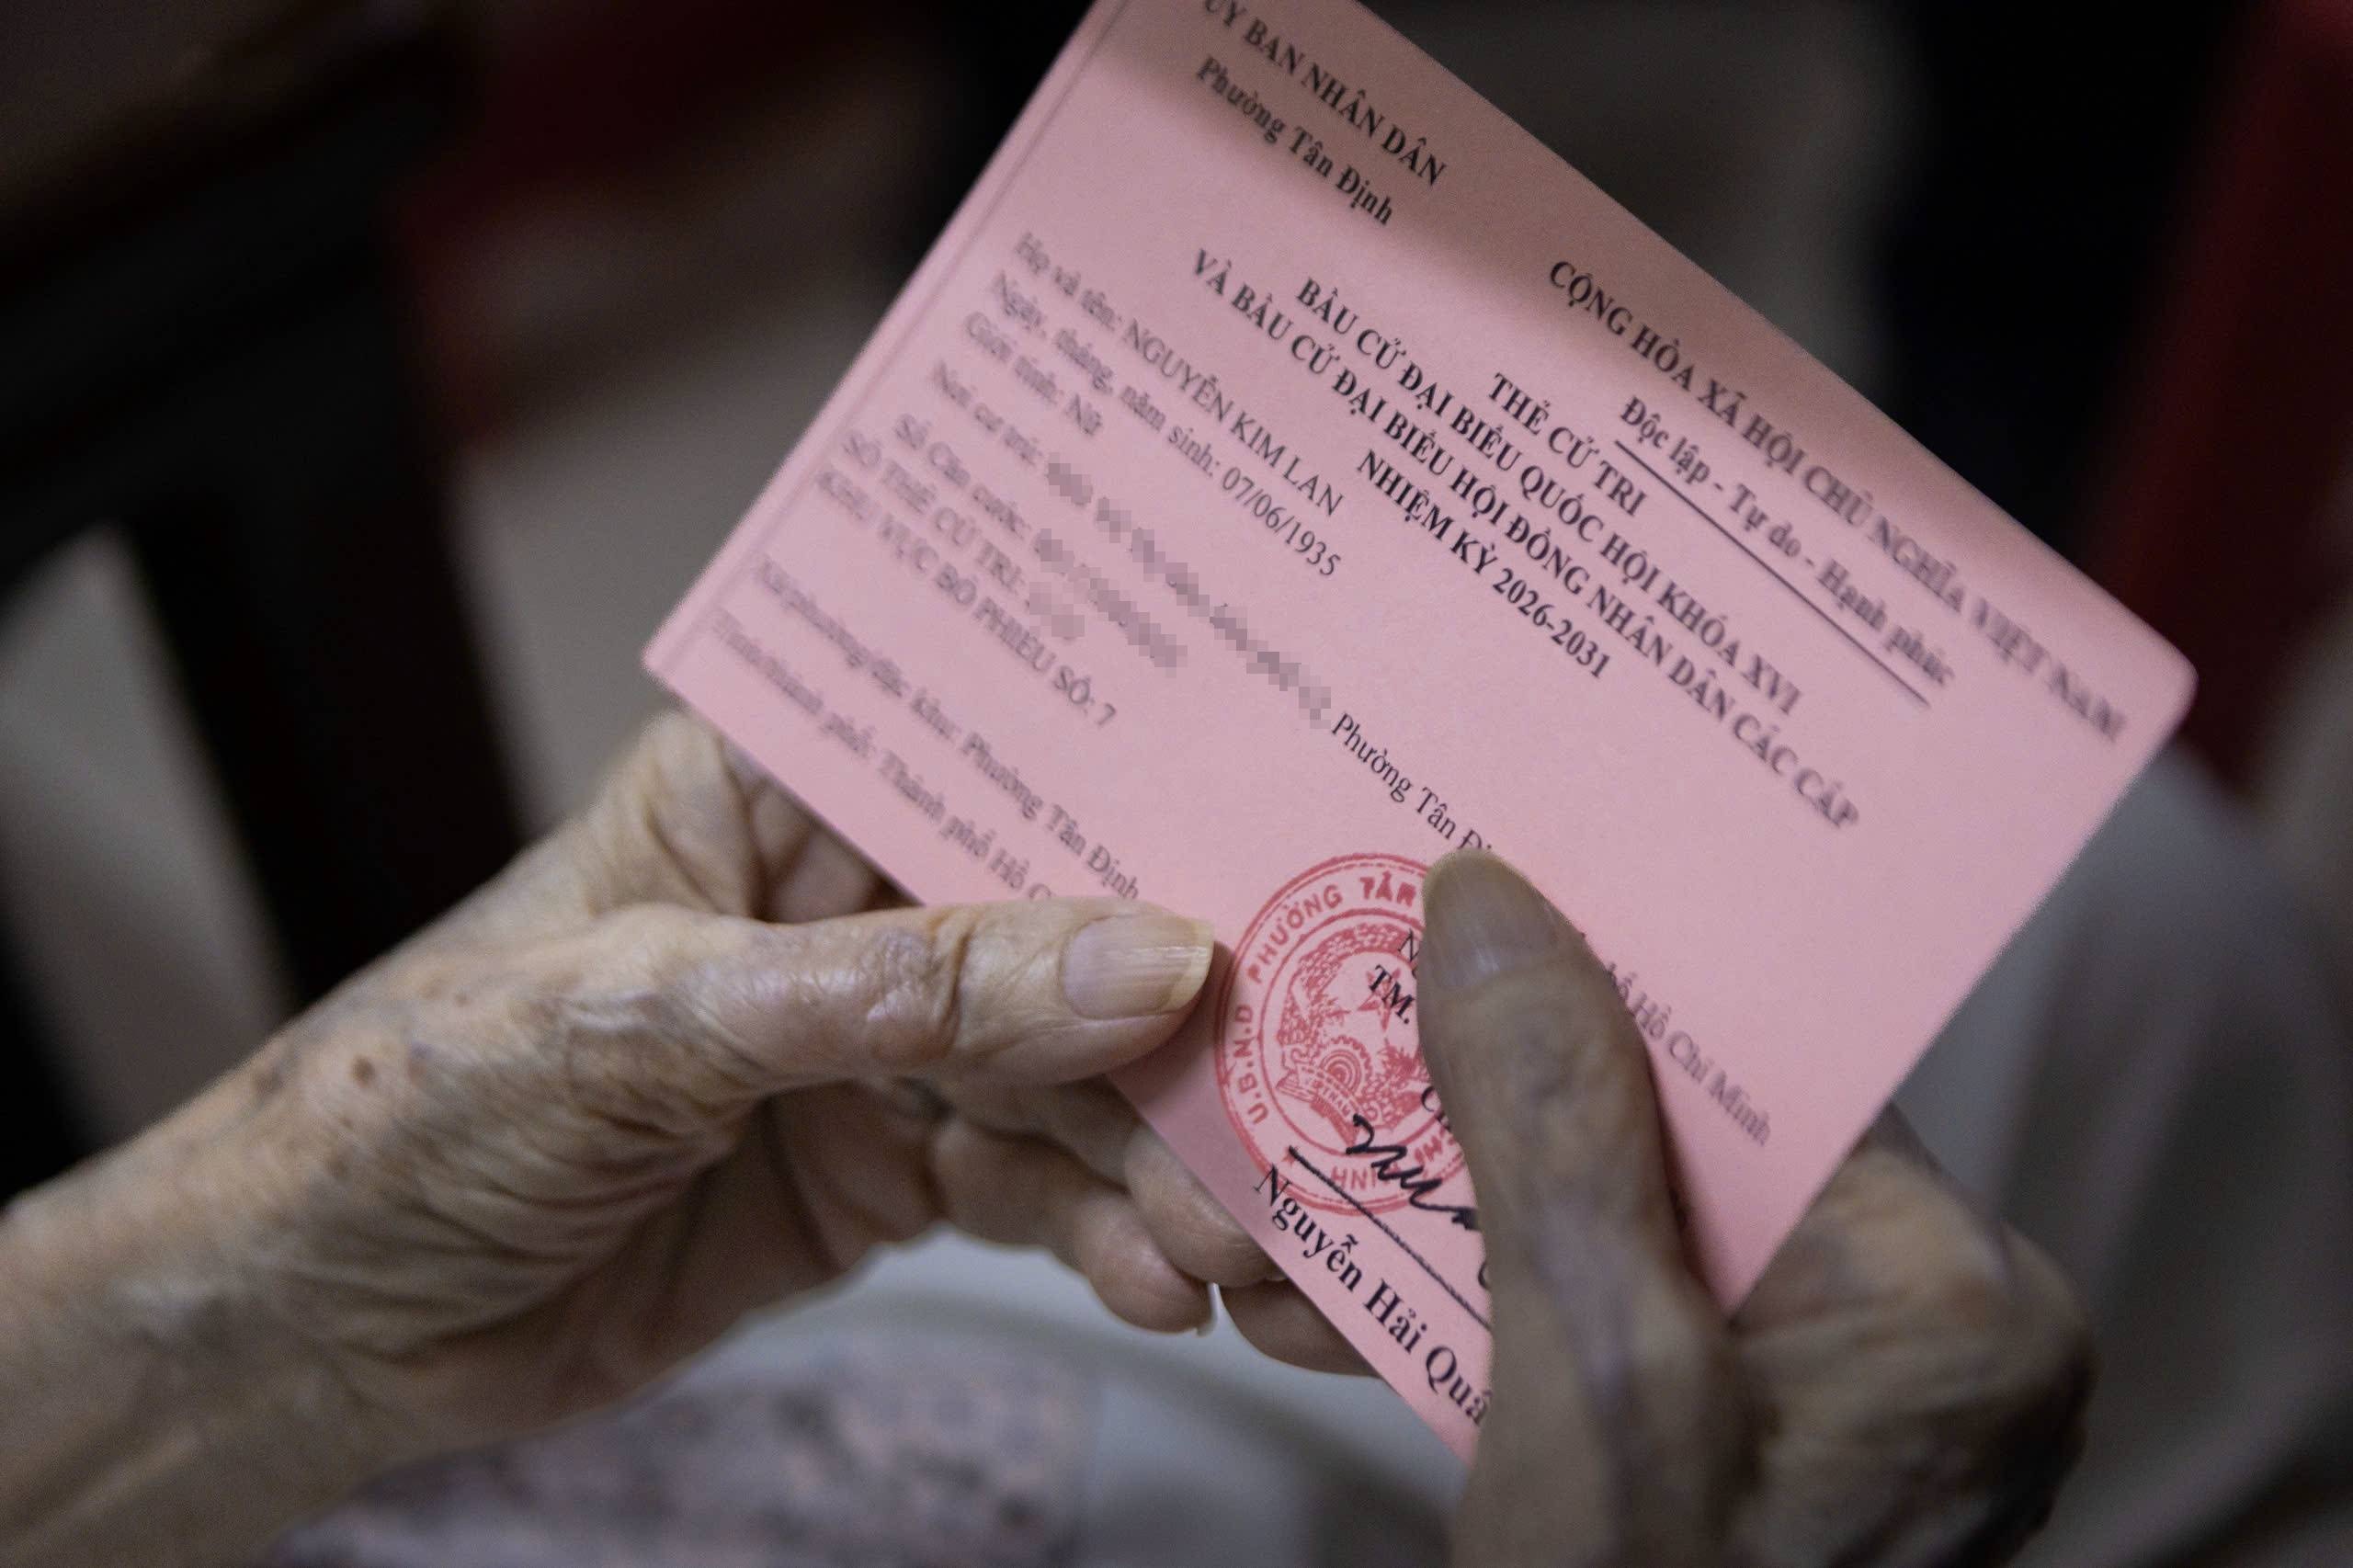 ỦY BAN NHÂN DÂN
Phường Tân Định
CỘNG HÒA XÃ HỘI CHỦ NGHĨA VIỆT NAM
Độc lập - Tự do - Hạnh phúc
THẺ CỬ TRI
BẦU CỬ ĐẠI BIỂU QUỐC HỘI KHÓA XVI
VÀ BẦU CỬ ĐẠI BIỂU HỘI ĐỒNG NHÂN DÂN CÁC CẤP
NHIỆM KỲ 2026-2031
Họ và tên: NGUYỄN KIM LAN
Ngày, tháng, năm sinh: 07/06/1935
Giới tính: Nữ
Nơi cư trú: Phường Tân
Số Căn cước:
SỐ THẺ CỬ TRI:
KHU VỰC BỎ PHIẾU SỐ: 7
Xã/phường/đặc khu: Phường Tân Định
Tỉnh/thành phố: Thành phố Hồ
Hồ Chí Minh
TM.
U.B.N.D PHƯỜNG TÂN
Nguyễn Hải